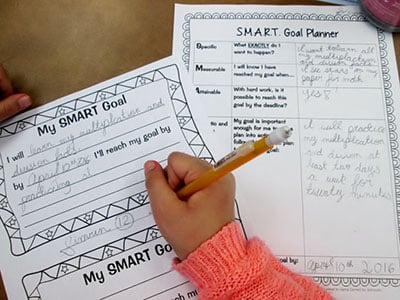 S.M.A.R.T. Goal Planner
Specific
What EXACTLY do I want to happen?
I want to learn all my multiplication and division facts
Measurable
I will know I have reached my goal when...
on my paper for math
Attainable
With hard work, is it possible to reach this goal by the deadline?
yes!
My goal is important enough for me to
plan into
I will practice
my multiplication
and division at
least two days
a week for
twenty minutes
goal by:
April 10th 2016
My SMART Goal
I will learn my multiplication and
division facts
by April 10th 2016 I'll reach my goal by
practicing
(12)
My SMART Goal
I will
by